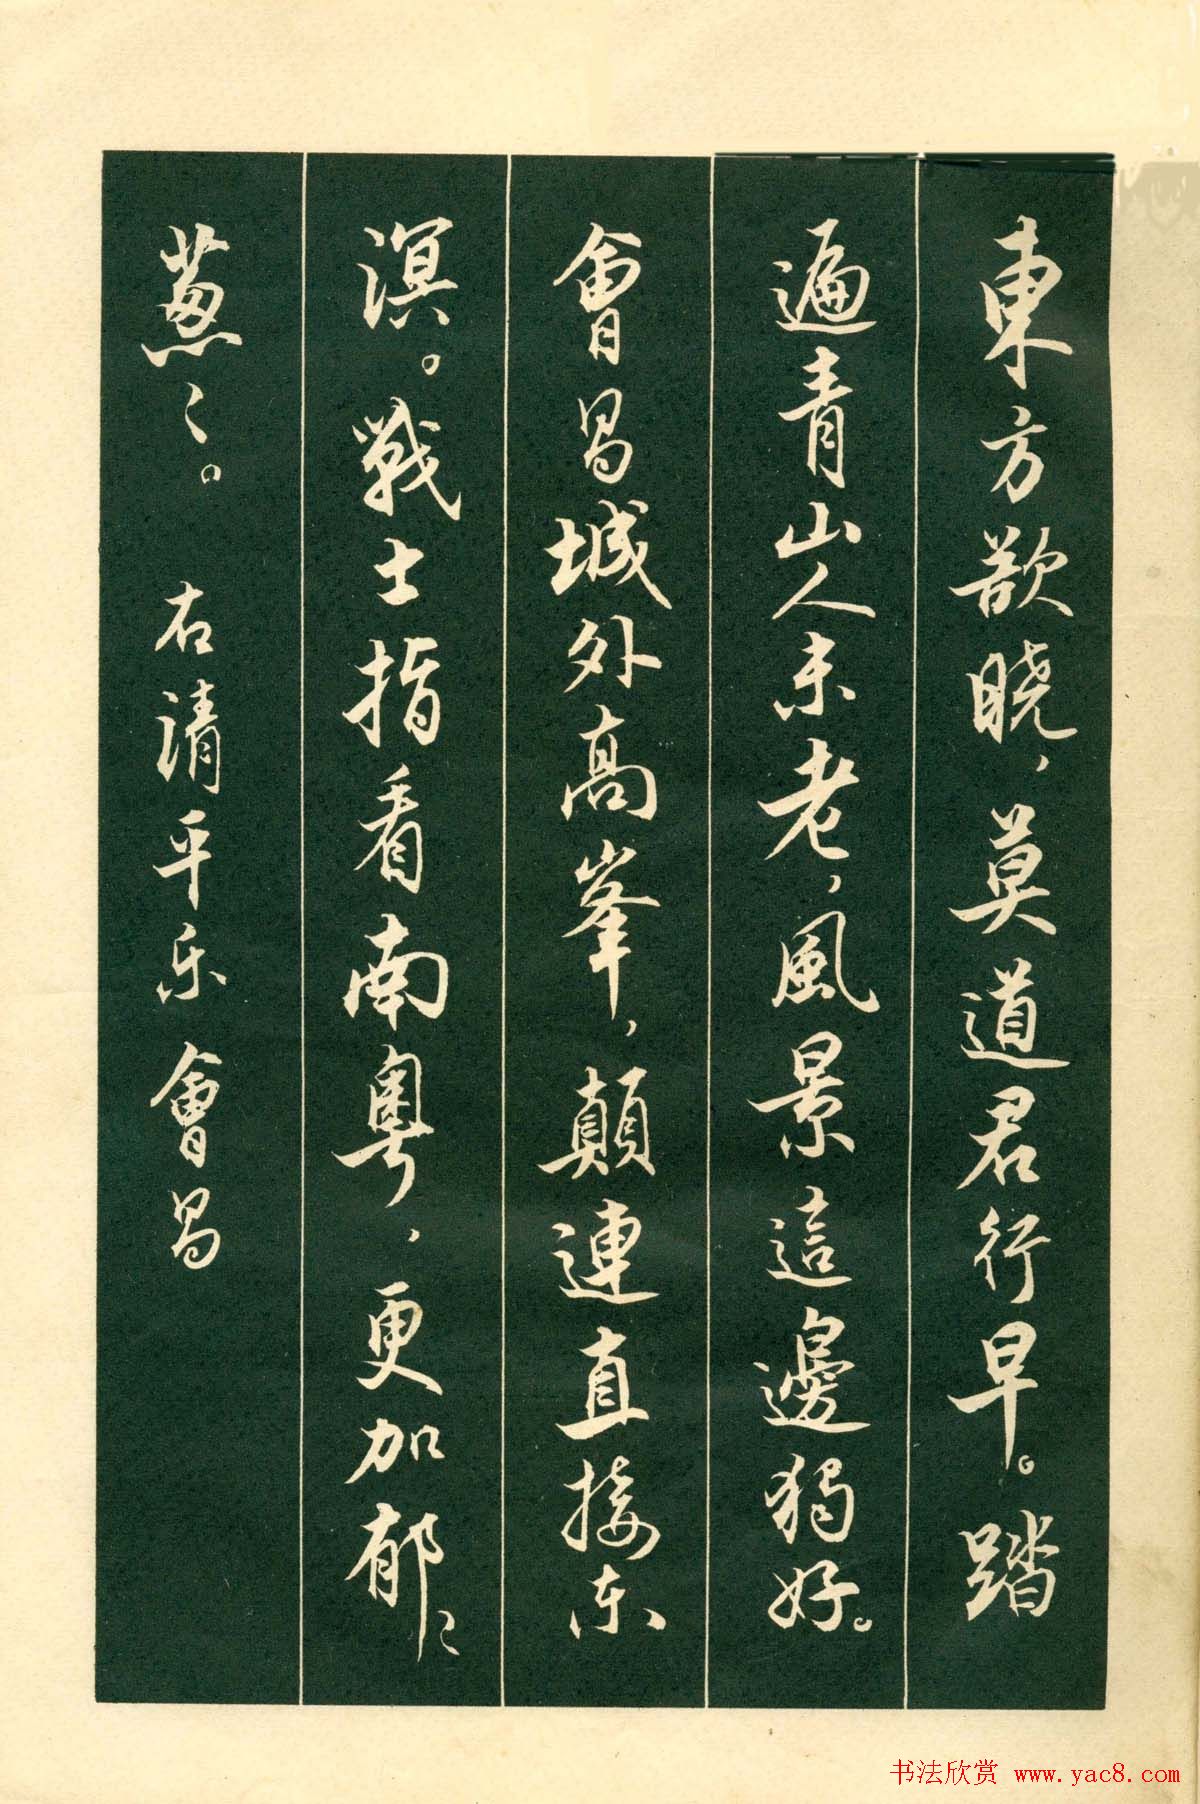 東方欲曉，莫道君行早。踏
遍青山人未老，風景這邊獨好。
會昌城外高峯，顛連直接东
溟。戰士指看南粵，更加郁〻
蔥〻。 右清平乐 會昌
书法欣赏 www.yac8.com